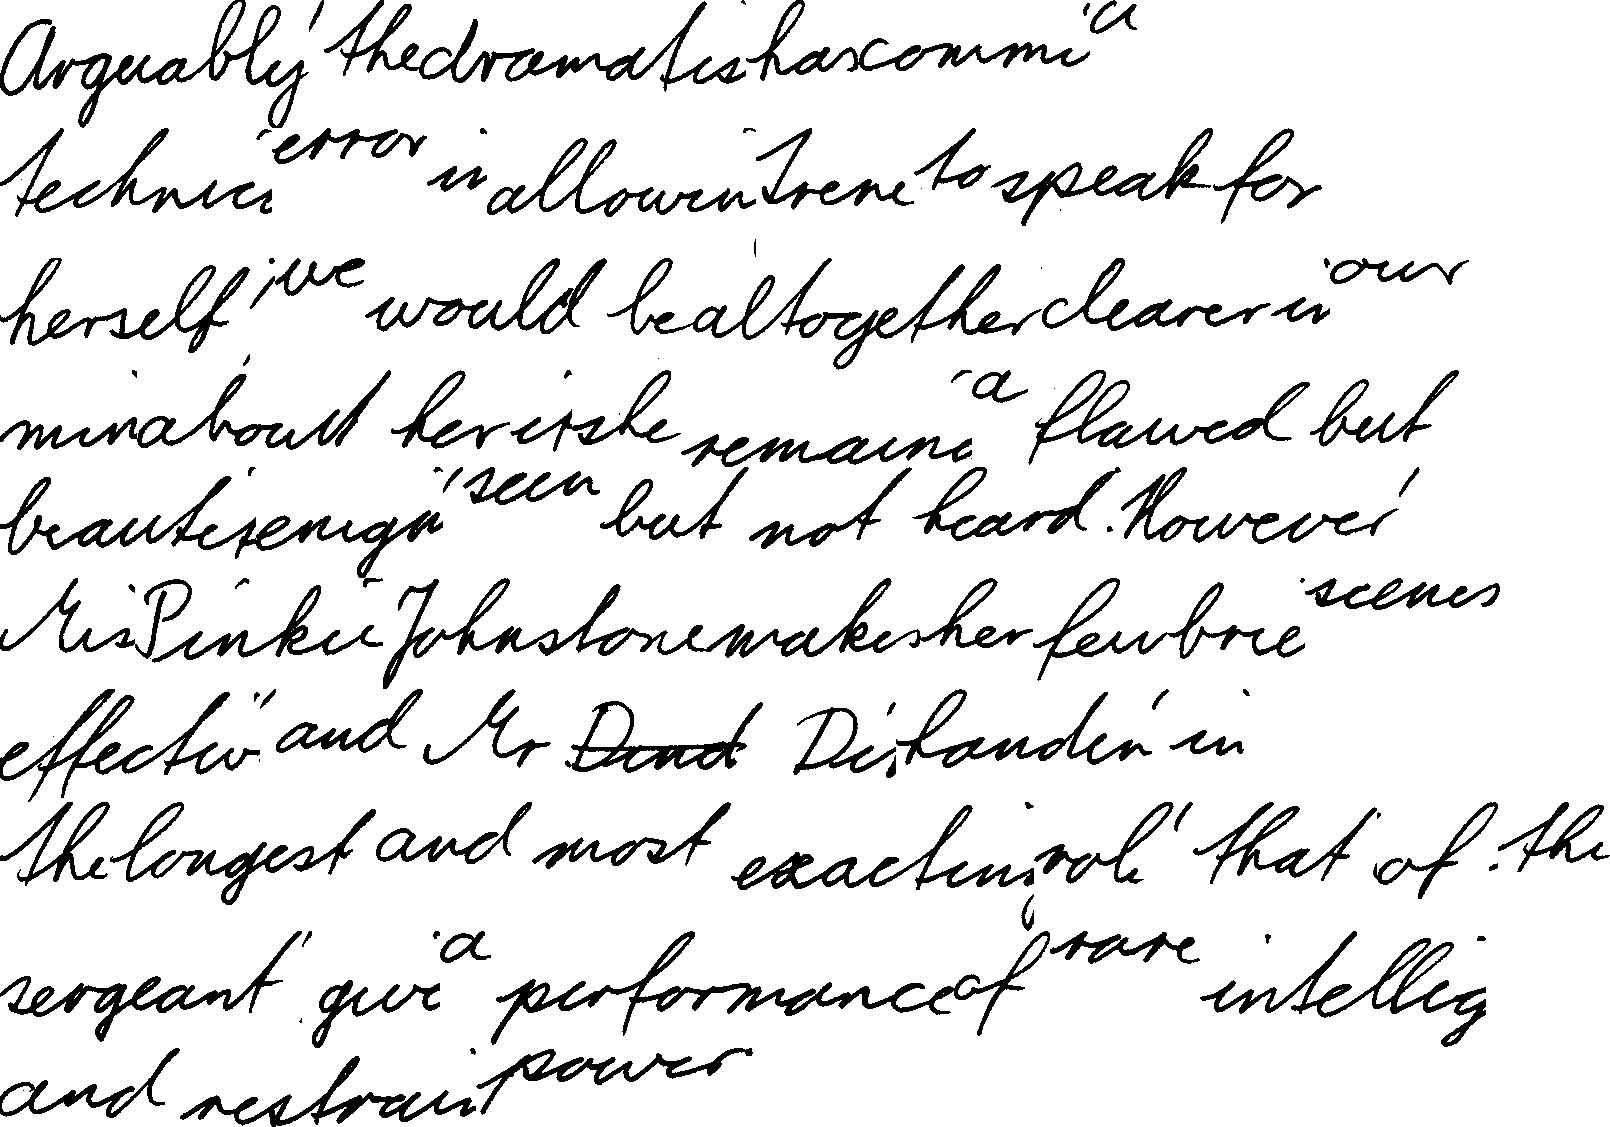 Arguably the dramatis has commi a
technica error in allowin Irene to speak for
herself; we would be altogether clearer in our
min about her if she remaine a flawed but
beautif enigm seen but not heard. However
Mis Pinkie Johnstone makes her few brie scenes
effectiv and Mr Dishandin in
the longest and most exactin role that of the
sergeant give a performance of rare intellig
and restrain power